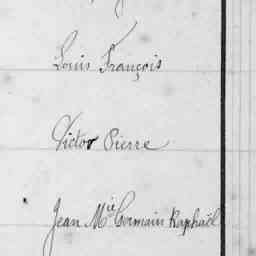 Louis François
Victor Pierre
Jean Mie Germain Raphaël